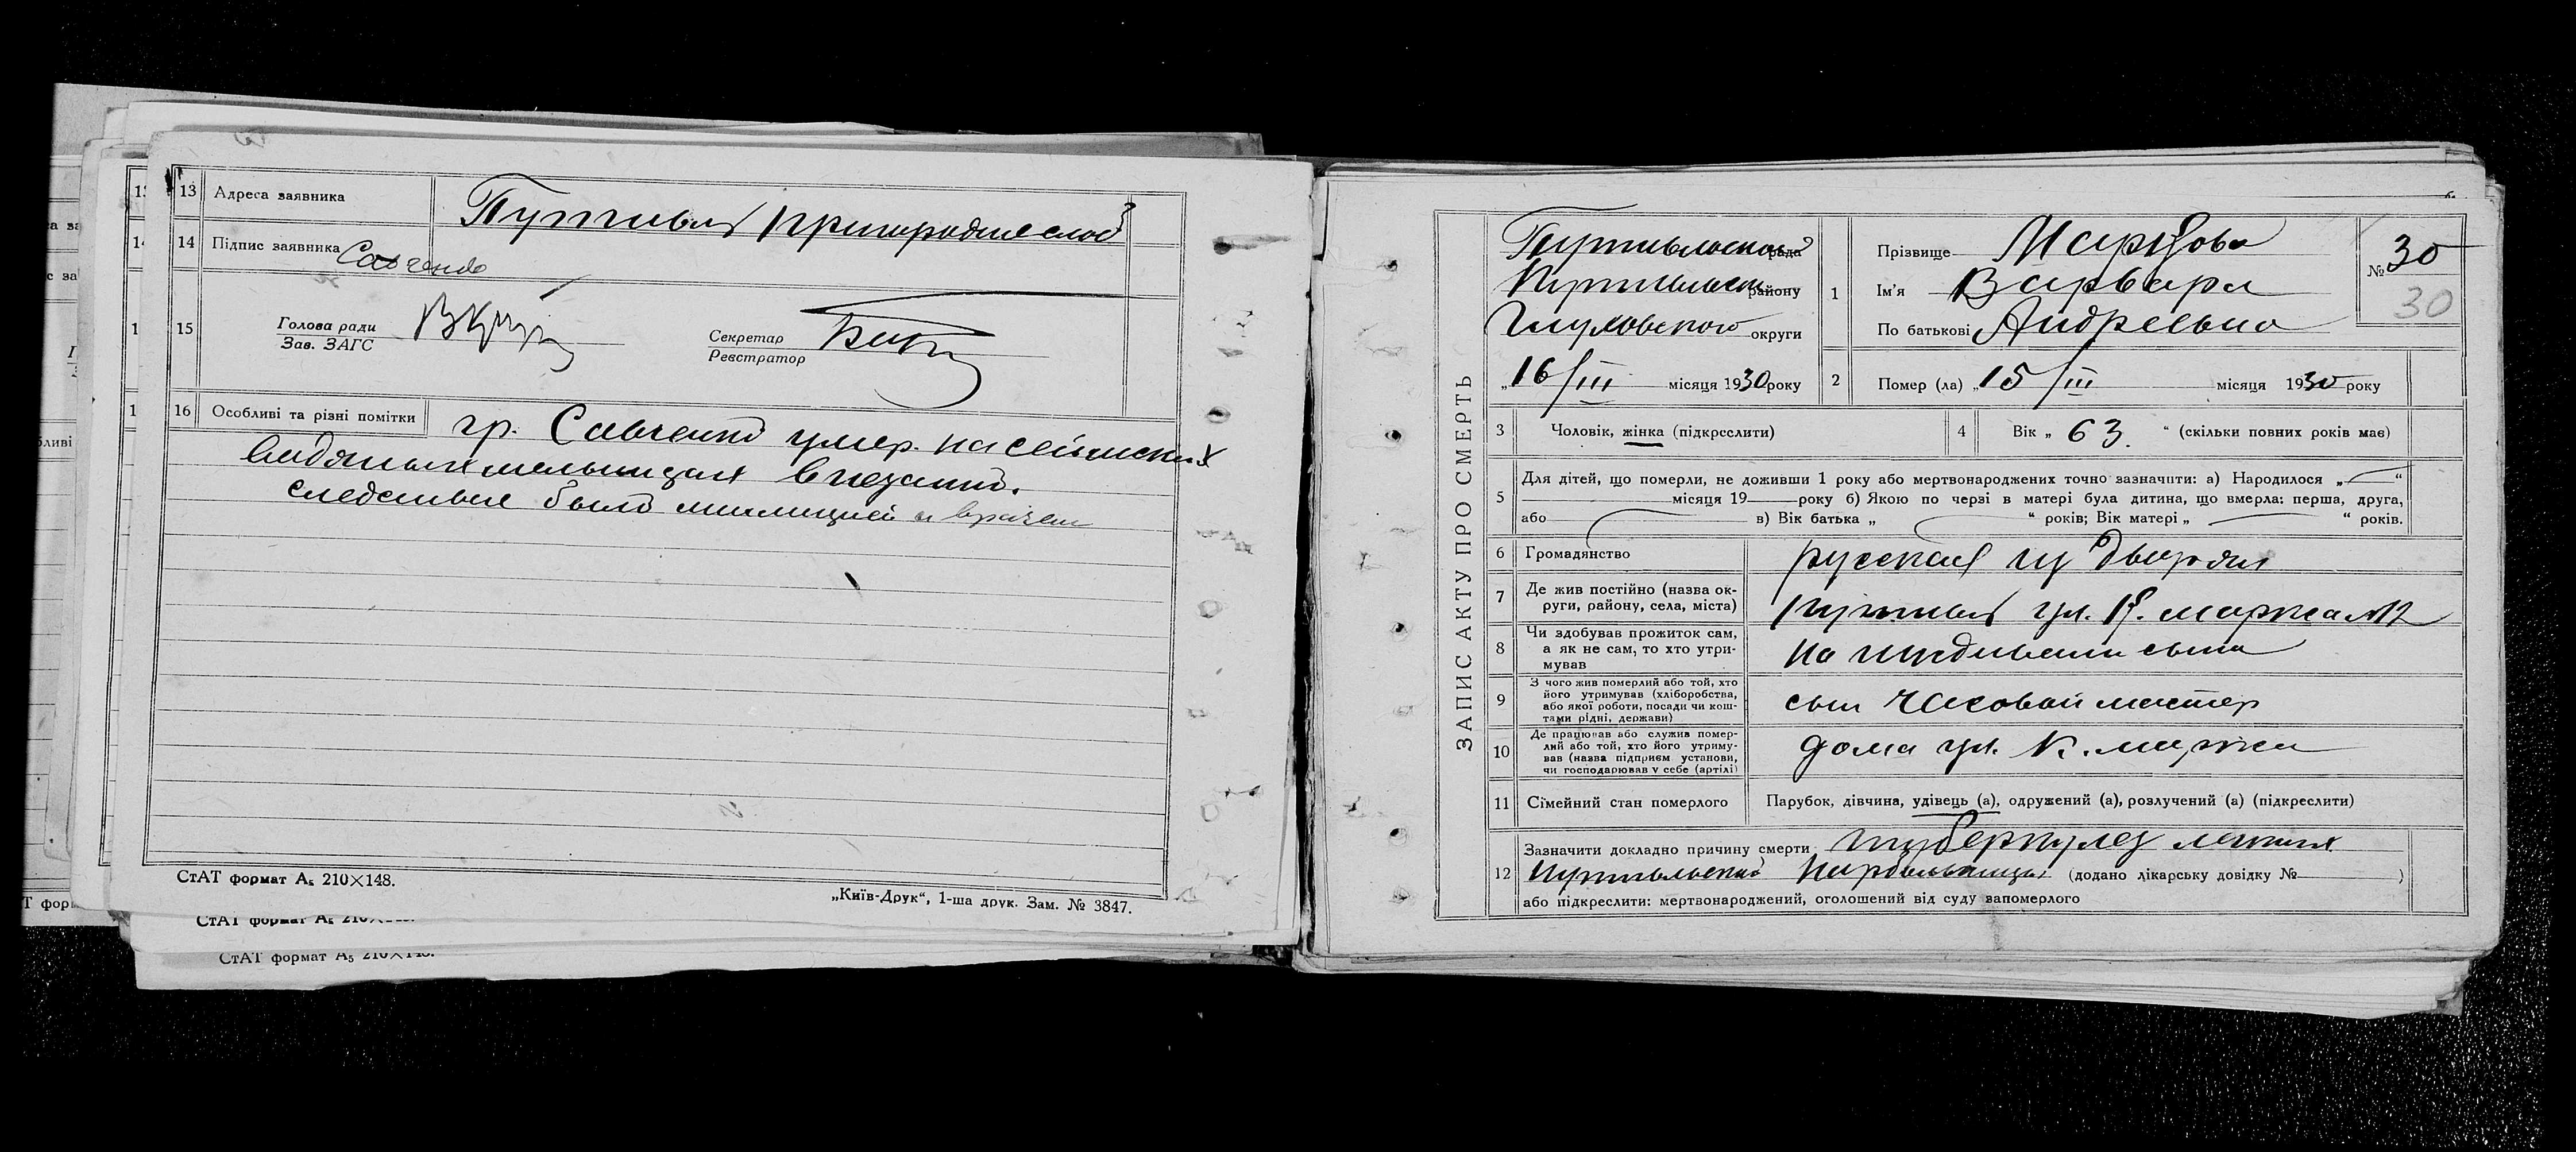 13 Адреса заявника Путивль пригородне слоб
14 Підпис заявника Савченко
15 Голова ради
Зав. ЗАГС
Секретар
Реєстратор
16 Особливі та різні помітки гр. Савченко умер на сеймских
водяных мельницах внезапно.
следствие было милицией и врачем
СтАТ формат А₅ 210×148.
„Київ-Друк“, 1-ша друк. Зам. № 3847.
СтАТ формат А₅ 210×148.
СтАТ формат А₅ 210×148.
ЗАПИС АКТУ ПРО СМЕРТЬ
Путивльская рада
Путивльск району
Глуховского округи
„16/III місяця 1930 року
1 Прізвище Марцова
Ім'я Варвара
По батькові Андреевна
№ 30
30
2 Помер (ла) „15/III місяця 1930 року
3 Чоловік, жінка (підкреслити)
4 Вік „ 63. “ (скільки повних років має)
5 Для дітей, що померли, не доживши 1 року або мертвонароджених точно зазначити: а) Народилося „ “
місяця 19 року б) Якою по черзі в матері була дитина, що вмерла: перша, друга,
або в) Вік батька „ “ років; Вік матері „ “ років.
6 Громадянство русская из дворян
7 Де жив постійно (назва округи, району, села, міста) Путивль ул. К. маркса №12
8 Чи здобував прожиток сам,
а як не сам, то хто утримував на иждивении сына
9 З чого жив померлий або той, хто
його утримував (хліборобства,
або якої роботи, посади чи коштами рідні, держави) сын часовой мастер
10 Де працював або служив померлий або той, хто його утримував (назва підприєм установи,
чи господарював у себе (артілі) дома ул. К. маркса
11 Сімейний стан померлого Парубок, дівчина, удівець (а), одружений (а), розлучений (а) (підкреслити)
12 Зазначити докладно причину смерти туберкулез легких
Путивльской Нарбольницы (додано лікарську довідку № )
або підкреслити: мертвонароджений, оголошений від суду запомерлого